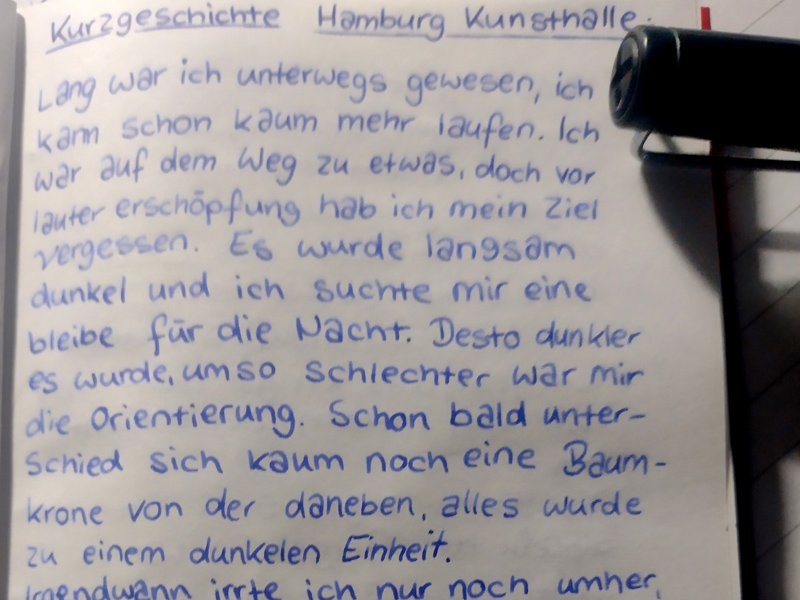 Kurzgeschichte Hamburg Kunsthalle.
Lang war ich unterwegs gewesen, ich
kann schon kaum mehr laufen. Ich
war auf dem Weg zu etwas, doch vor
lauter erschöpfung hab ich mein Ziel
vergessen. Es wurde langsam
dunkel und ich suchte mir eine
bleibe für die Nacht. Desto dunkler
es wurde, umso schlechter war mir
die Orientierung. Schon bald unter-
schied sich kaum noch eine Baum-
krone von der daneben, alles wurde
zu einem dunkelen Einheit.
Irgendwann irrte ich nur noch umher,